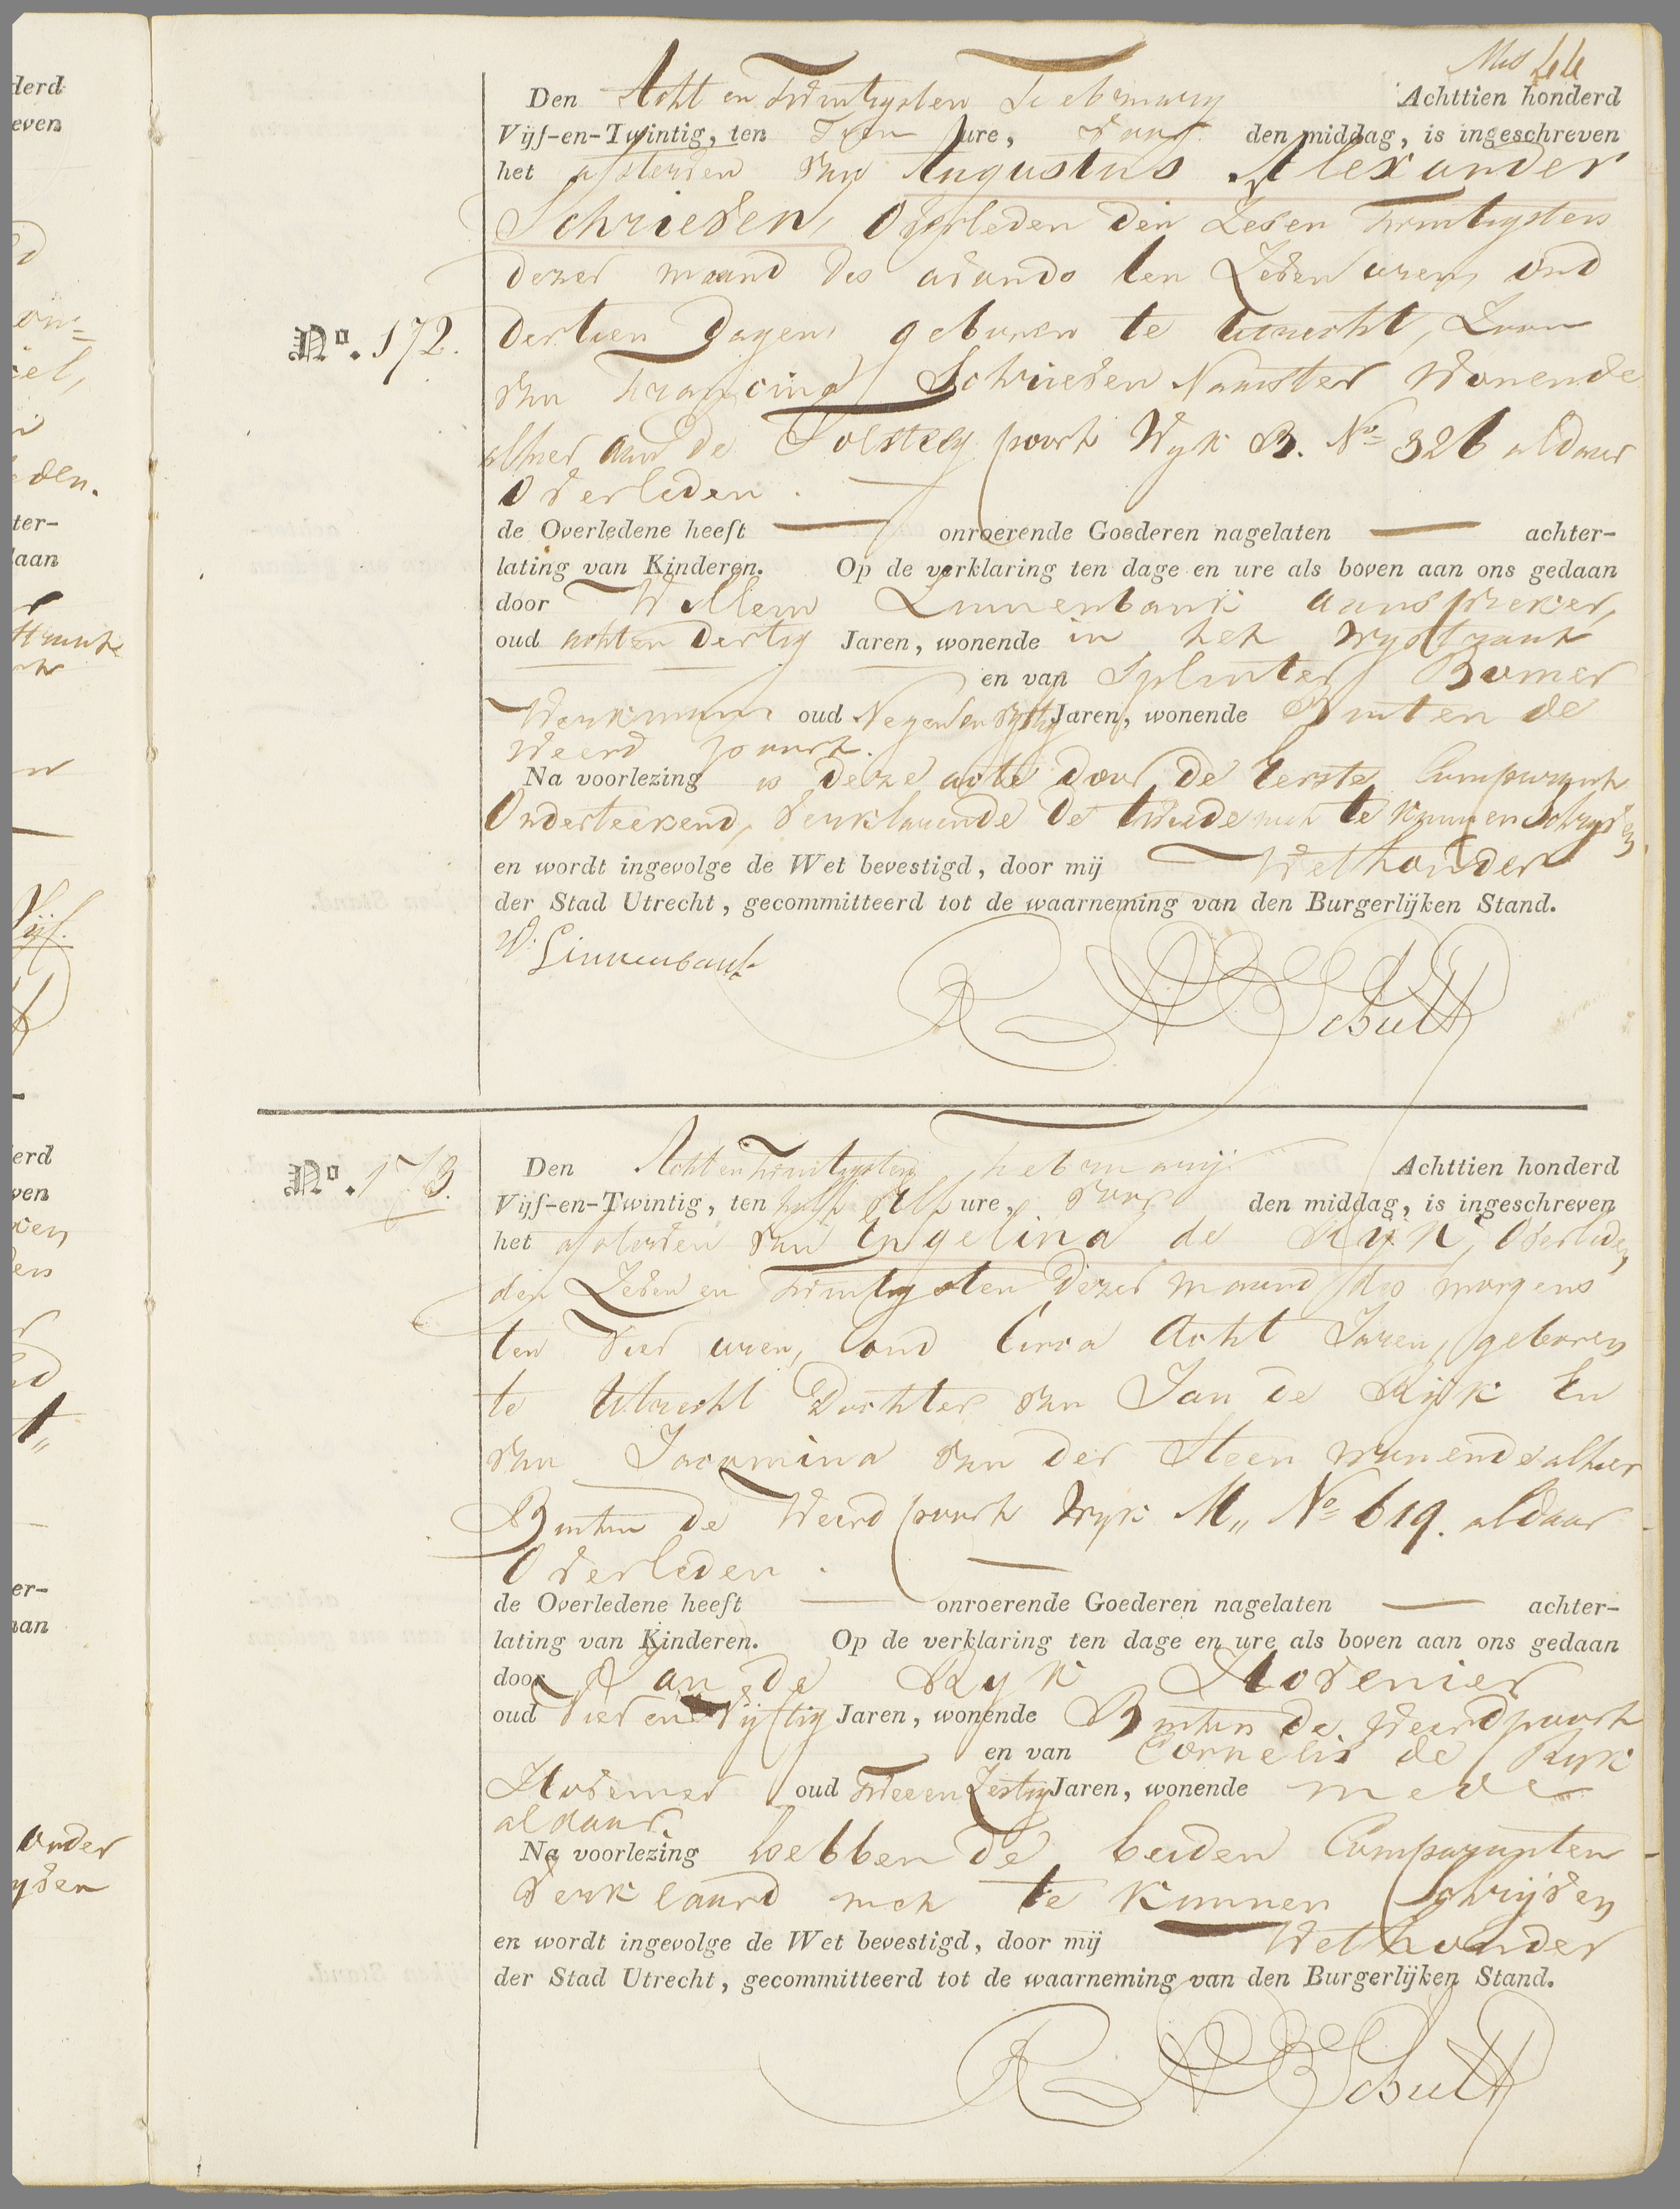 Den Acht en Twintigsten Februarij Achttien honderd
Vijf-en-Twintig, ten Tien ure, voor den middag, is ingeschreven
het afsterven van Augustus Alexander
Schrieven, Overleden den Zeven Twintigsten
dezer maand des avonds ten Zeven uren, oud
dertien Dagen, geboren te Utrecht, Zoon
van Francina Schrieven Naaister Wonende
No. 172.
alhier aan de Tolsteeg poort Wijk B. No 326 aldaar
Overleden.
de Overledene heeft — onroerende Goederen nagelaten — achter-
lating van Kinderen. Op de verklaring ten dage en ure als boven aan ons gedaan
door Willem Linnenbank aanspreker,
oud acht en dertig Jaren, wonende in het
en van Splinter Bomer
Werkman oud Jaren, wonende Buiten de
Weerd poort.
Na voorlezing is deze acte door de Eerste Comparant
Onderteekend, verklarende de tweede niet te kunnen Schrijven,
en wordt ingevolge de Wet bevestigd, door mij Wethouder
der Stad Utrecht, gecommitteerd tot de waarneming van den Burgerlijken Stand.
W. Linnenbank
No. 173.
Den Acht en Twintigsten Februarij Achttien honderd
Vijf-en-Twintig, ten half Elf ure, voor den middag, is ingeschreven
het afsterven van Engelina de Rijk, Overleden
den Zeven en Twintigsten Dezer maand des morgens
ten Vier uren, oud Circa Acht Jaren, geboren
te Utrecht Dochter van Jan de Rijk En
van Jacomina van der Steen wonende alhier
Buiten de Weerd poort Wijk M,, No 619. aldaar
Overleden.
de Overledene heeft — onroerende Goederen nagelaten — achter-
lating van Kinderen. Op de verklaring ten dage en ure als boven aan ons gedaan
door Jan de Rijk Hovenier
oud Vier en Vijftig Jaren, wonende Buiten de Weerdpoort
en van Cornelis de Rijk
Hovenier oud Twee en Zestig Jaren, wonende mede
aldaar.
Na voorlezing hebben de beiden Comparanten
verklaard niet te kunnen Schrijven
en wordt ingevolge de Wet bevestigd, door mij Wethouder
der Stad Utrecht, gecommitteerd tot de waarneming van den Burgerlijken Stand.